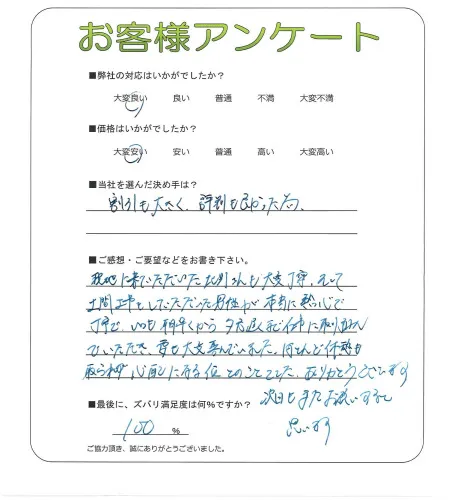 お客様アンケート
■弊社の対応はいかがでしたか？
大変良い 良い 普通 不満 大変不満
■価格はいかがでしたか？
大変安い 安い 普通 高い 大変高い
■当社を選んだ決め手は？
割引も大きく、評判も良かった為、
■ご感想・ご要望などをお書き下さい。
現地に来ていただいた さんも大変丁寧、そして
土間工事をしていただいた男性が本当に熱心で
丁寧で、いつも朝早くから夕方遅くまで仕事に取り組んで
いただき、妻も大変喜んでいました。ほとんど休憩も
取られず心配になる位とのことでした。ありがとうございます
次回もまたお願いすると
思います
■最後に、ズバリ満足度は何％ですか？
100 ％
ご協力頂き、誠にありがとうございました。